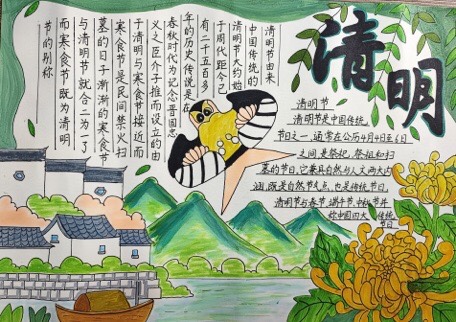 清明
清明节由来
中国传统的
清明节大约始
于周代距今已
有二千五百多
年的历史传说是在
春秋时代为纪念晋国忠
义之臣介子推而设立的由
于清明与寒食节接近而
寒食节是民间禁火扫
墓的日子渐渐的寒食节
与清明节就合二为一了
而寒食节既为清明
节的别称
清明节
清明节是中国传统
节日之一,通常在公历4月4日至6日
之间,是祭祀、祭祖和扫
墓的节日,它兼具自然与人文两大内
涵,既是自然节气点,也是传统节日,
清明节与春节、端午节、中秋节并
称中国四大传统
节日